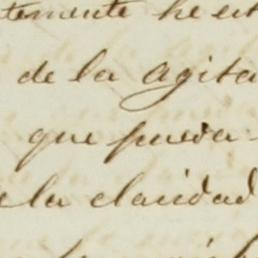 temente he est
de la agita
que pueda
la claridad